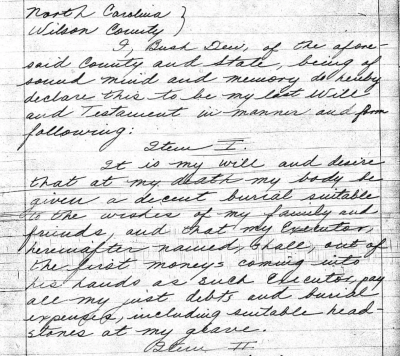 North Carolina }
Wilson County }
I, Bush Dew, of the afore-
said County and State, being of
sound mind and memory do hereby
declare this to be my last Will
and Testament in manner and form
following:
Item I.
It is my will and desire
that at my death my body be
given a decent burial suitable
to the wishes of my family and
friends, and that my Executor,
hereinafter named, shall, out of
the first moneys coming into
his hands as such Executor, pay
all my just debts and burial
expenses, including suitable head-
stones at my grave.
Item II.